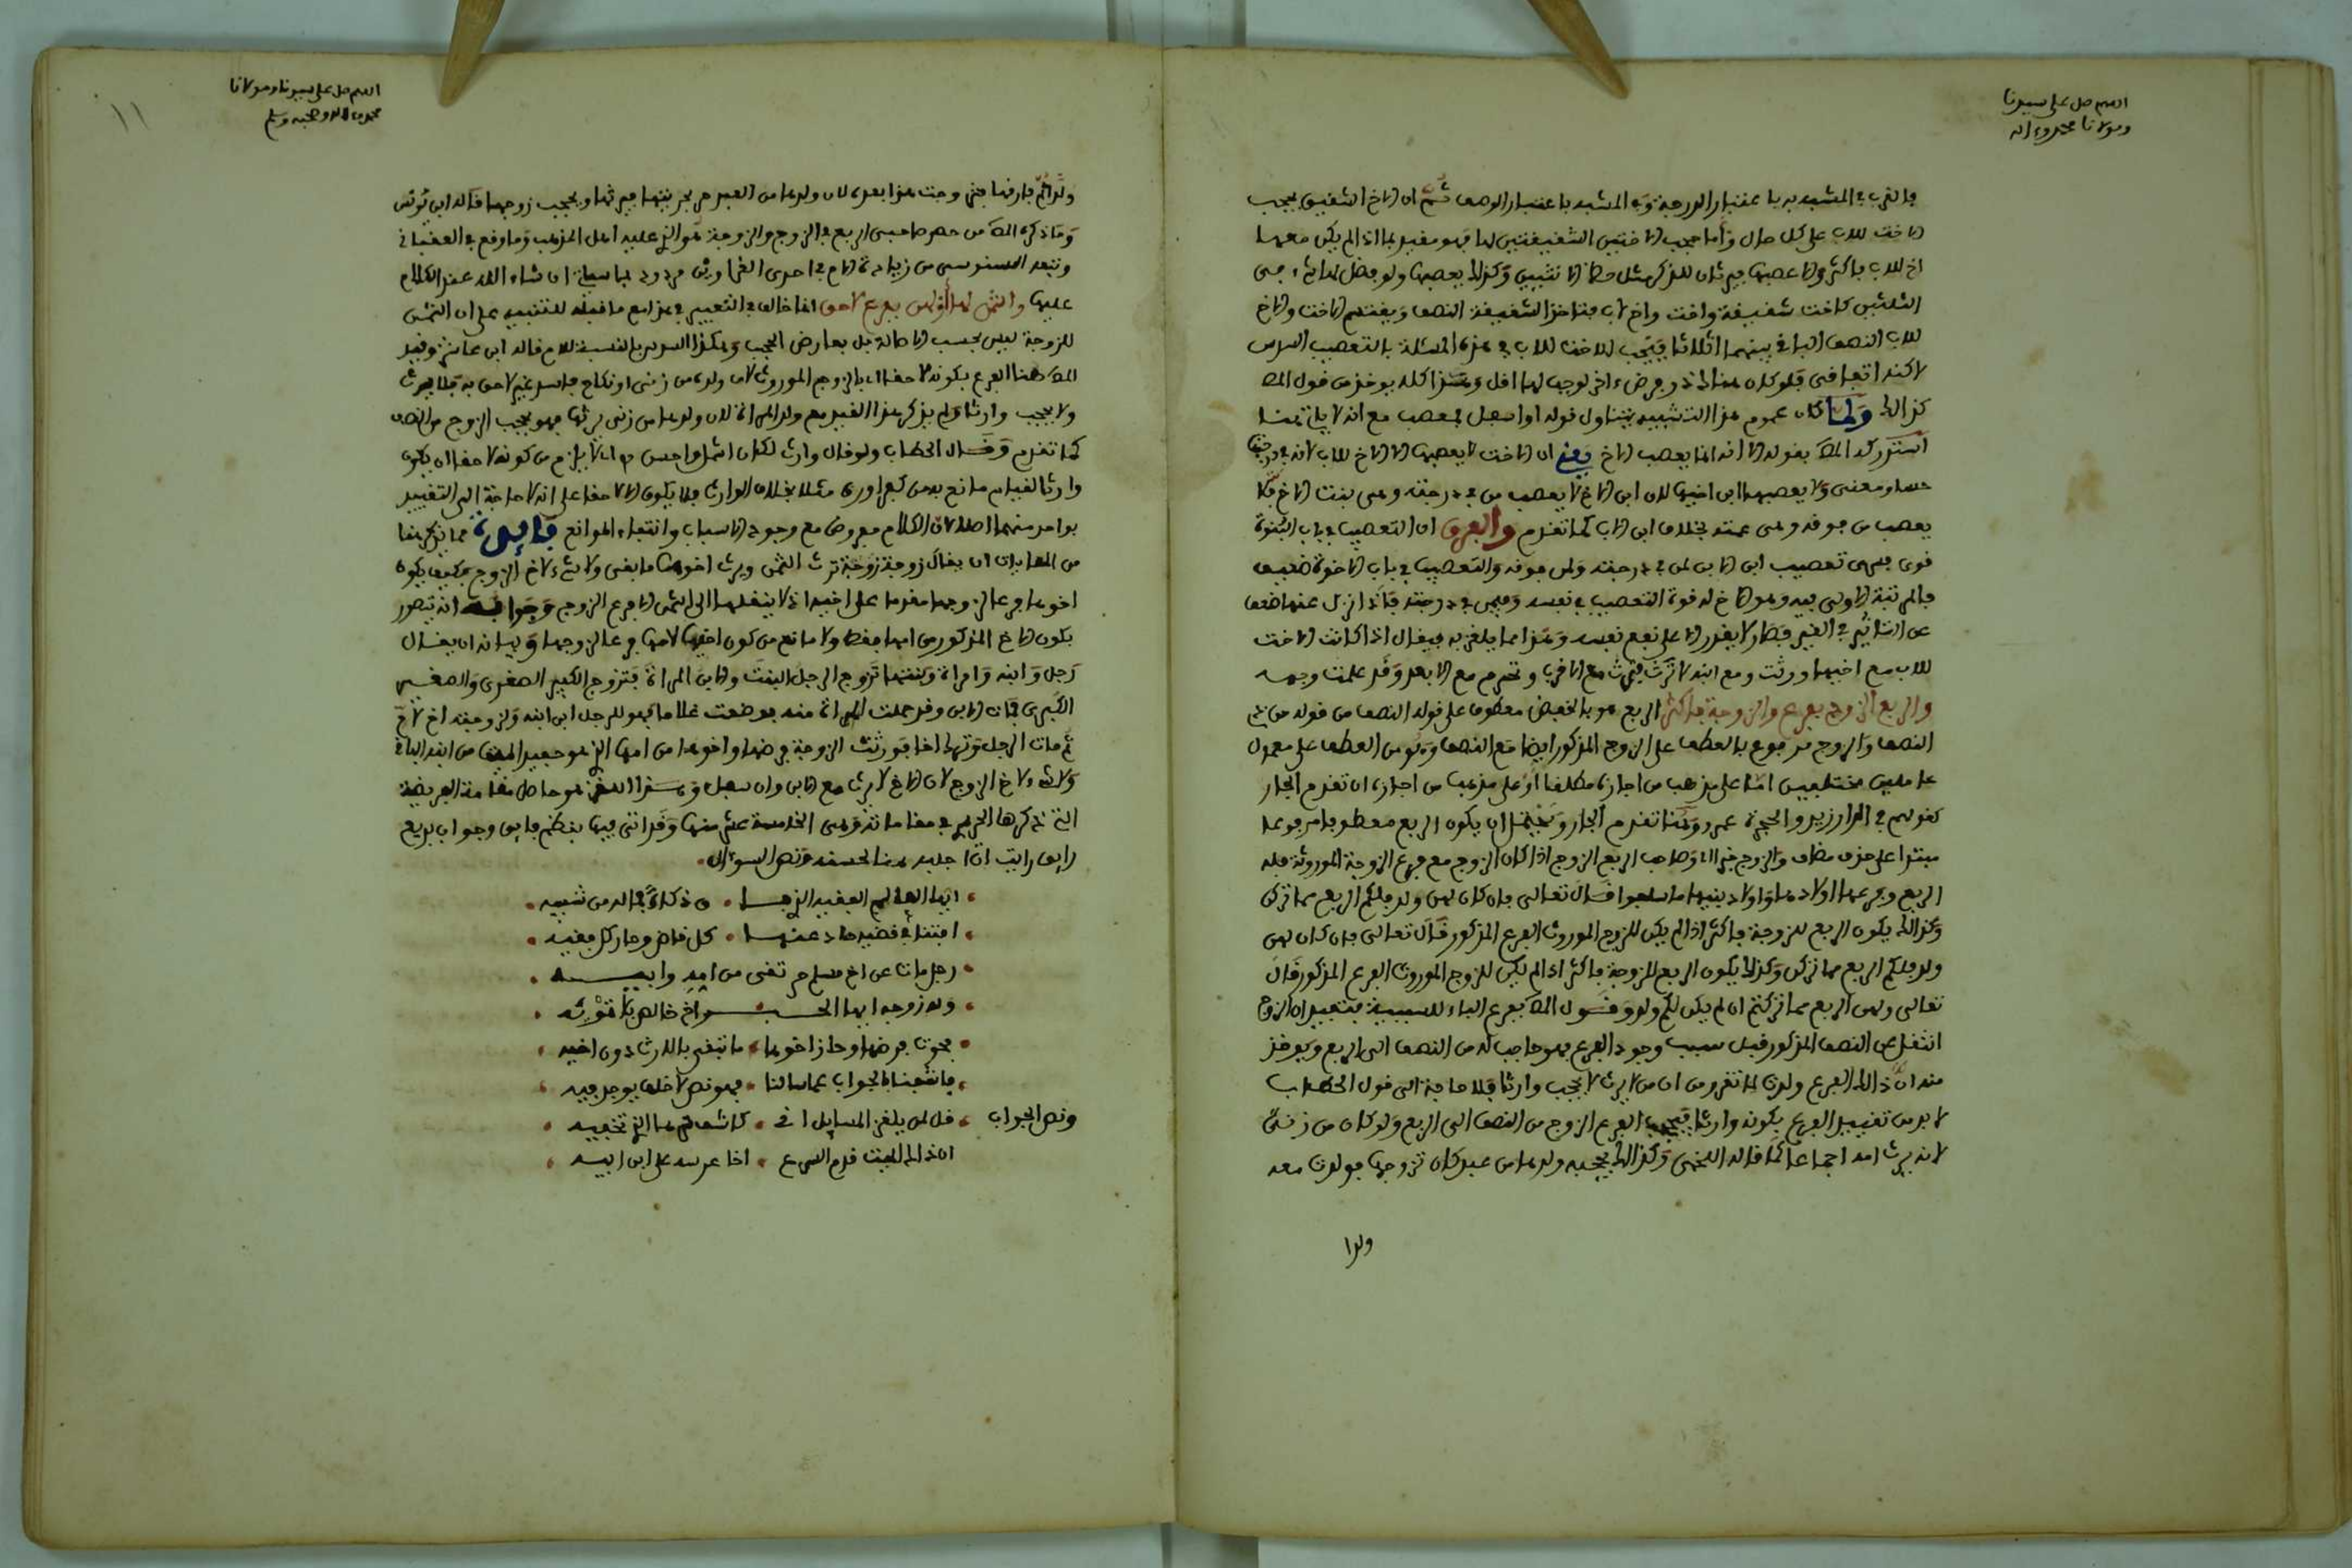 اللهم صل على سيدنا
ومولانا محمد وءاله
فالقرب في المشبه به باعتبار الدرجة وفي المشبه باعتبار الوصف ثم ان الاخ الشقيق يحجب
الاخت للاب على كل حال وأما حجب الاختين الشقيقتين لها فهو مقيد بما اذا لم يكن معهما
اخ للاب فاكثر والا عصبها فيرثان للذكر مثل حظ الانثيين وكذلك يعصبها ولو فضل لها شيء من
الثلثين كاخت شقيقة واخت واخ لاب فتاخذ الشقيقة النصف ويقتسم الاخت والاخ
للاب النصف الباقي بينهما اثلاثا فيجب للاخت للاب في هذه المسئلة بالتعصيب السدس
لاكنه اتفاقي فلو كان هنالك ذو فرض ءاخر لوجب لها اقل وهذا كله يوخذ من قول المص
كذلك ولما كان عموم هذا التشبيه يتناول قوله او اسفل فمعصب مع انه لا ياتي هنا
استدركه المص بقوله الا انه انما يعصب الاخ يعني ان الاخت لا يعصبها الا الاخ للاب لانه في درجتها
حسا ومعنى ولا يعصبها ابن اخيها لان ابن الاخ لا يعصب من في درجته وهي بنت الاخ فلا
يعصب من فوقه وهي عمته بخلاف ابن الابن كما تقدم والفرق ان التعصيب في باب البنوة
قوي فسرى تعصيب ابن الابن لمن في درجته ولمن فوقه والتعصيب في باب الاخوة ضعيف
فالمرتبة الاولى فيه وهو الاخ له قوة التعصيب في نفسه وفيمن في درجته فاذا نزل عنها ضعف
عن التاثير في الغير فصار لا يقدر الا على نفع نفسه وهذا مما يلغز به فيقال اذا كانت الاخت
للاب مع اخيها ورثت ومع ابنه لا ترث فترث مع الاقرب وتحرم مع الابعد وقد علمت وجهه
والربع الزوج بفرع والزوجة فاكثر الربع هو بالخفض معطوف على قوله النصف من قوله من ذي
النصف والزوج مرفوع بالعطف على الزوج المذكور ايضا مع النصف وهو من العطف على معمولي
عاملين مختلفين اما على مذهب من اجازه مطلقا او على مذهب من اجازه ان تقدم الجار
كقولهم في الدار زيد والحجرة عمرو وهنا تقدم الجار ويحتمل ان يكون الربع معطوفا مرفوعا
مبتدا على حذف مضاف والزوج خبر اي وصاحب الربع الزوج اذا كان الزوج مع فرع الزوجة الموروثة فله
الربع وفرعها اولادها واولاد بنيها ما سفلوا قال تعالى فان كان لهن ولد فلكم الربع مما تركن
وكذلك يكون الربع للزوجة فاكثر اذا لم يكن للزوج الموروث الفرع المذكور قال تعالى فان كان لهن
ولد فلكم الربع مما تركن وكذلك يكون الربع للزوجة فاكثر اذا لم يكن للزوج الموروث الفرع المذكور قال
تعالى ولهن الربع مما تركتم ان لم يكن لكم ولد وقول المص بفرع الباء للسببية فتفيد ان الزوج
انتقل عن النصف المذكور قبل بسبب وجود الفرع فهو حاجب له من النصف الى الربع ويوخذ
منه ان ذلك الفرع ولدت لما تقرر من ان من لا يرث لا يحجب وارثا فلا حاجة الى قول الحطاب
لا بد من تقييد الفرع بكونه وارثا فيحجب الفرع الزوج من النصف الى الربع ولو كان من زنى
لانه يرث امه اجماعا كما قاله اللخمي وكذلك يحجبه ولدها من عبد كان تزوجها فولدت معه
ولدا
اللهم صل على سيدنا ومولانا
محمد وءاله وصحبه وسلم
١١
ولدا ثم فارقها حتى وحتى هذا بعده لان ولدها من العبد حر بحريتها فيرثها ويحجب زوجها قاله ابن يونس
وما ذكره المص من حصر صاحبي الربع في الزوج والزوجة هو الذي عليه اهل المذهب وما وقع في العقباني
وتبعه السنوسي من زيادة الام في احدى الغراوين مردود بما سياتي ان شاء الله عند الكلام
عليها والثمن لها او لهن بفرع لاحق انما خالف في التعبير في هذا مع ما قبله للتنبيه على ان الثمن
للزوجة ليس بحسب الاصالة بل بعارض الحجب وهكذا السدس بالنسبة للام قاله ابن عاشر وقيد
المص هنا الفرع بكونه لاحقا اي بالزوج الموروث لان ولده من زنى او نكاح فاسد غير لاحق به فلا يرث
ولا يحجب وارثا ولم يذكر هذا القيد مع ولد المراة لان ولدها من زنى يرثها فهو يحجب الزوج من النصف
كما تقدم وقال الحطاب ولو قال وارث لكان اشمل واحسن اذ لا يلزم من كونه لاحقا ان يكون
وارثا لقيام مانع به من كفر او رق مثلا بخلاف الوارث فلا يكون الا لاحقا على انه لا حاجة الى التقييد
بواحد منهما اصلا لان الكلام مفروض مع وجود الاسباب وانتفاء الموانع فائدة مما يذكر هنا
من المعاياة ان يقال زوجة ترث الثمن ويرث اخوها ما بقي ولا شيء لاخ الزوج فكيف يكون
اخوها فرعا لزوجها مقدما على اخيه اذ لا ينقلها الى الثمن الا فرع الزوج وجوابه انه يتصور
بكون الاخ المذكور من امها فقط ولا مانع من كون اخيها لامها فرعا لزوجها وبيانه ان يقال
رجل وابنه وامراة وبنتها تزوج الرجل البنت والابن المراة فتزوج الكبير الصغرى والصغير
الكبرى فمات الابن وقد حملت المراة منه فوضعت غلاما فهو للرجل ابن ابنه ولزوجته اخ لام
ثم مات الرجل وترك اخا فورثت الزوجة فرضها واخوها من امها الذي هو حفيد الميت من ابنه الباقي
ولا شيء لاخ الزوج لان الاخ لا يرث مع الابن وان سفل وهذا اللغز هو حاصل مقامة الفريضة
التي ذكرها الحريري في مقاماته وهي الخامسة عشر منها وقد اتى فيها بنظم فايق وجواب بديع
رايق رايت ان اجلبه هنا لحسنه ونص السوال
ايها العالم الفقيه الذي فا ق ذكاء فما له من شبيه
افتنا في قضية حاد عنها كل قاض وحار كل فقيه
رجل مات عن اخ مسلم حر تقي من امه وابيه
وله زوجة لها ايها الحبر اخ خالص بلا تمويه
فحوت فرضها وحاز اخوها ما تبقى بالارث دون اخيه
فاشفنا بالجواب عما سالنا فهو نص لا خلف يوجد فيه
ونص الجواب قل لمن يلغز المسايل اني كاشف سرها الذي تخفيه
ان ذا الميت قدم الشرع اخا عرسه على ابن ابيه